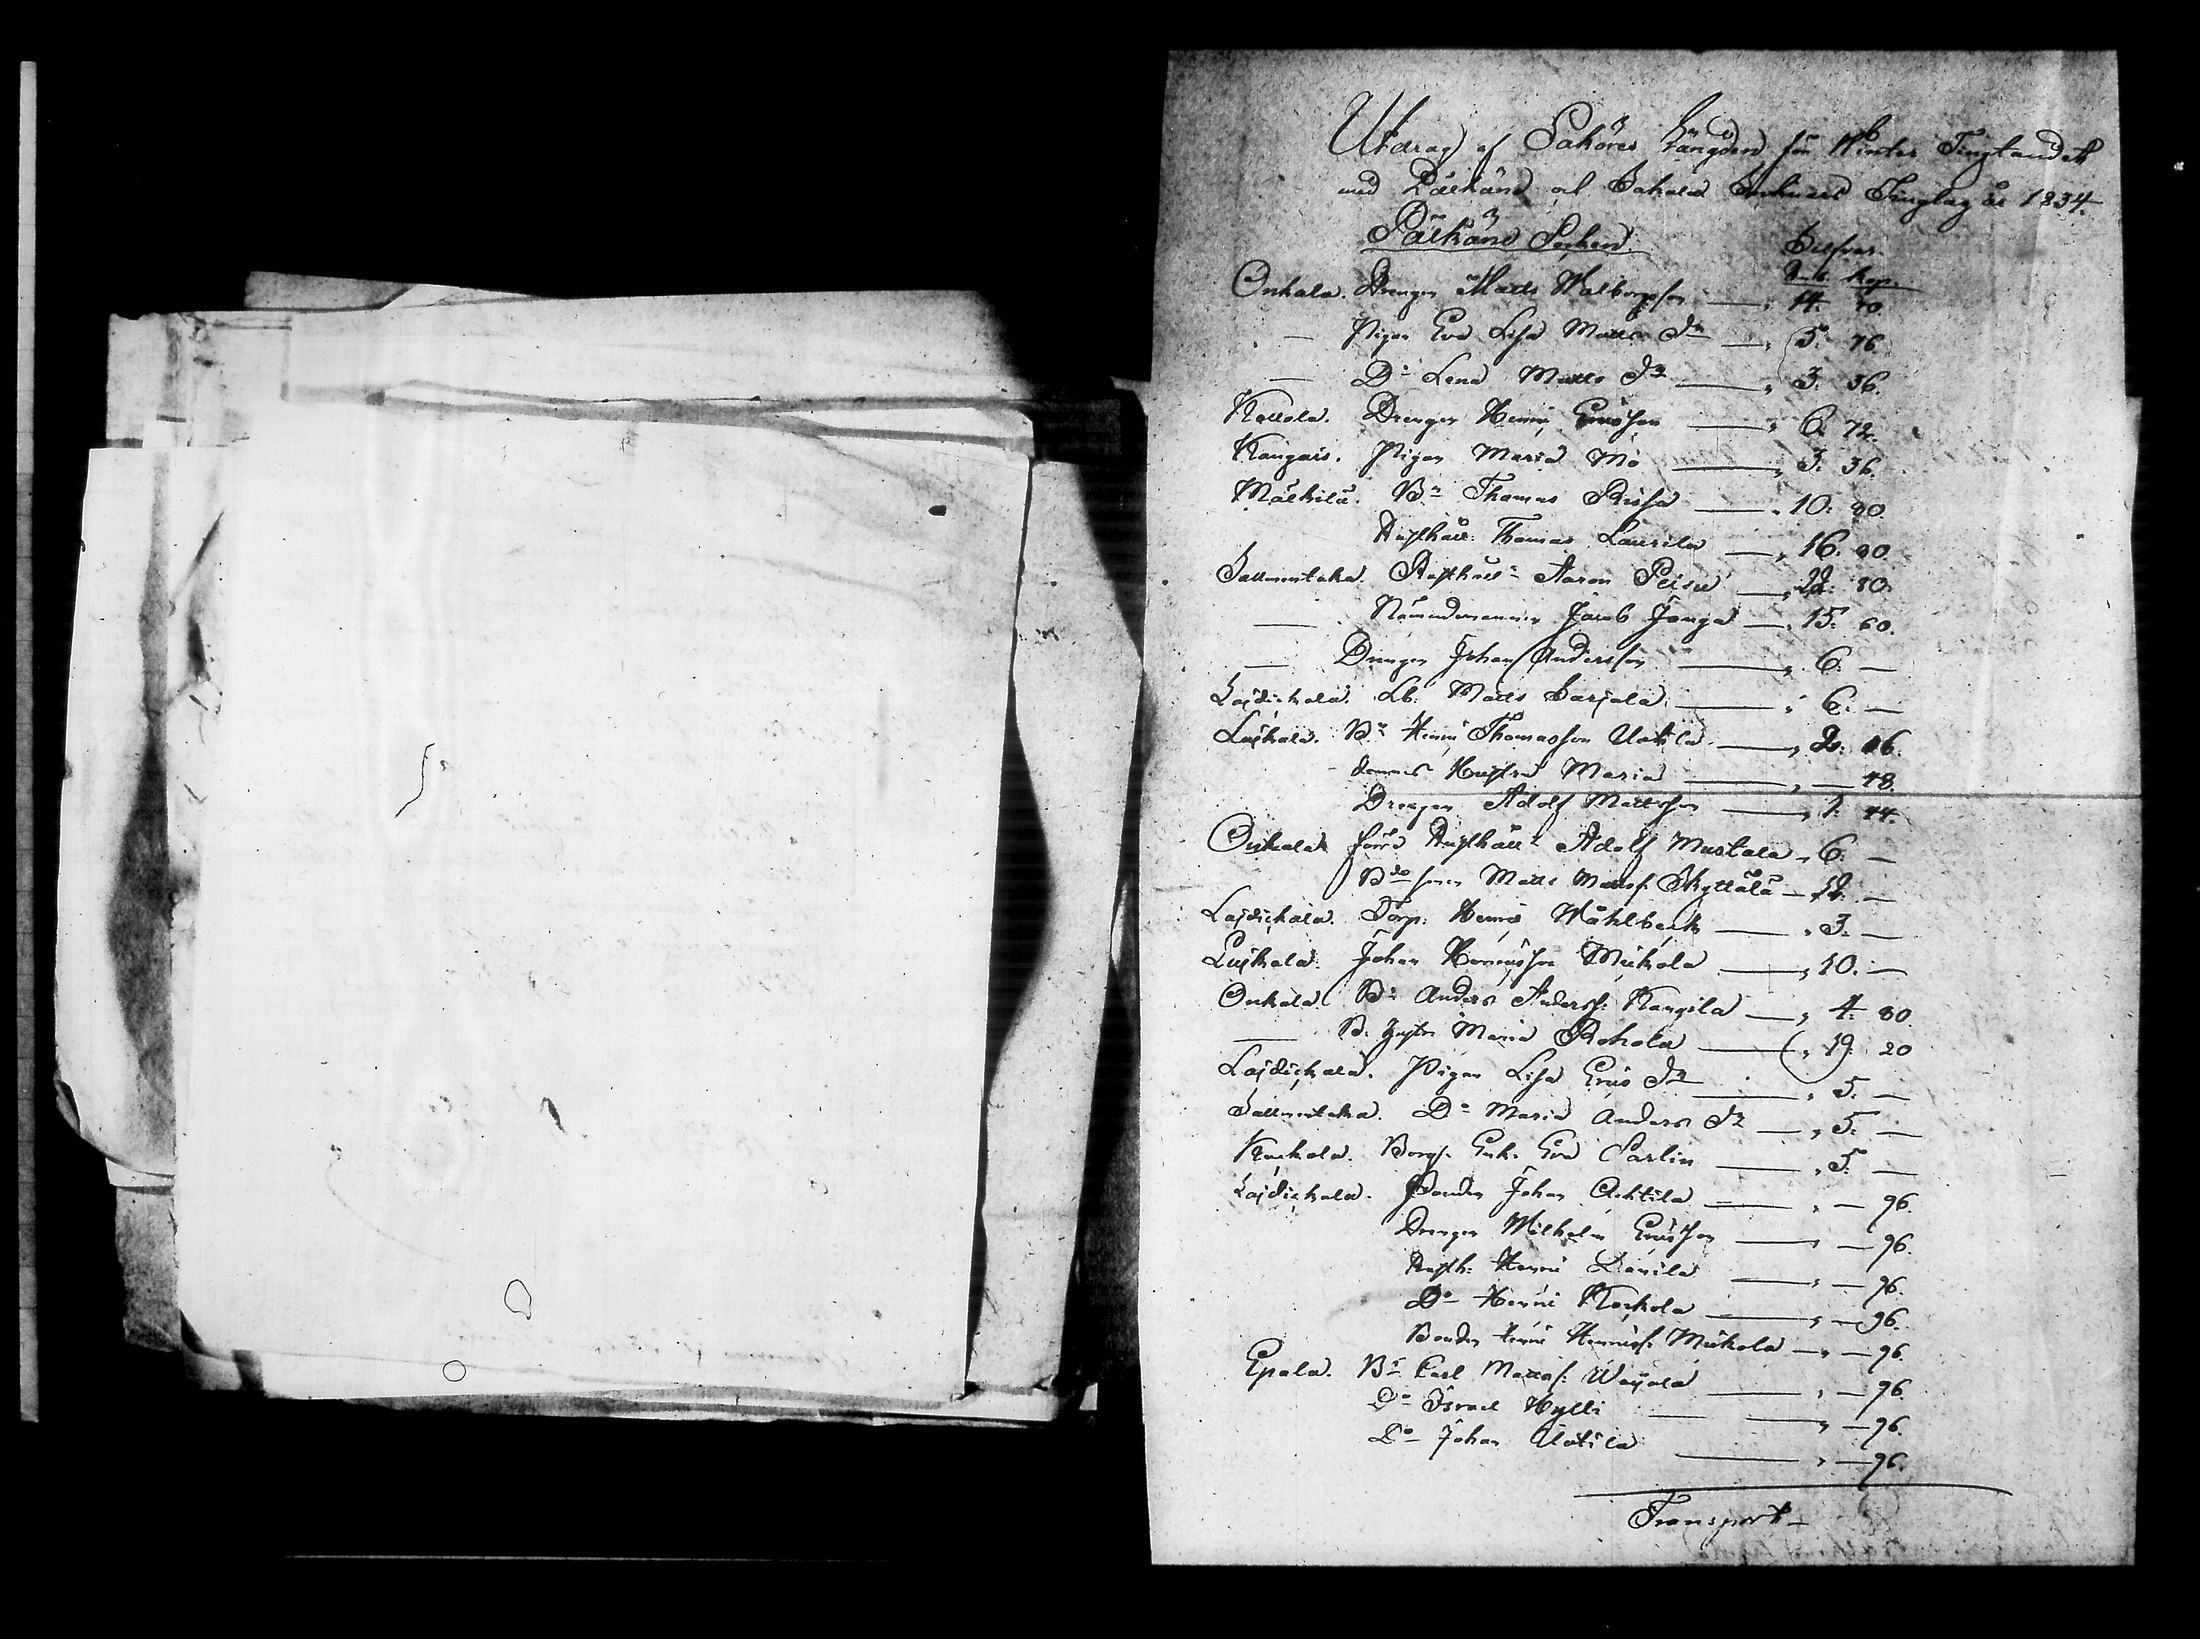 Utdrag af Saköres Längden för Winter Tingtandet
med Pälkäne och Sahalax Socknars Tinglag år 1834.
Pälkäne Socken. Silfver.
Rub. Kop.
Onkala. Drengen Matts Walborgsson — " 14. 40.
— Pigan Eva Lisa Matts Dr — " 5. 76.
— Do Lena Matts Dr — " 3. 36.
Kollola. Drengen Henric Ericsson — " 6. 72.
Kangais. Pigan Maria Mö — " 3. 36.
Mälkilä. Bn Thomas Rissa — " 10. 80.
Rusthåll: Thomas Laurila — " 16. 80.
Salmentaka. Rusthåll: Aaron Peisu — " 22. 80.
— Nämndemannen Jacob Jonga — " 15. 60.
— Drengen Johan Andersson — " 6. —
Laidickala. Lb. Matts Sarjala — " 6. —
Luikala. Bn Henric Thomasson Uotila — " 2. 16.
dennes Hustru Maria — " — 48.
Drengen Adolf Mattsson — " 1. 44.
Onkala förra Rusthåll: Adolf Mustala " 6. —
Bdesonen Matts Mattsf. Skyttälä — 12. —
Laidickala. Torp: Henric Wåhlbeck — " 3. —
Luikala. Johan Henricsson Mickola — " 10. —
Onkala. Bn Anders Andersf. Kangila — " 4. 80.
— B. Hustr. Maria Rohola — " 19. 20
Laidickala. Pigan Lisa Erics Dr — " 5. —
Salmentaka. Do Maria Anders Dr — " 5. —
Kuckola. Borgs. Enk. Eva Carlin — " 5. —
Laidickala. Bonden Johan Achtila — " — 96.
Drengen Wilhelm Ericsson — " — 96.
Rusth: Henric Danila — " — 96.
Do Henric Kockola — " — 96.
Bonden Henric Henricsf. Mickola — " — 96.
Epala. Bn Carl Mattsf. Woijala — " — 96.
Do Israel Hylli — — " — 96.
Do Johan Uotila — " — 96.
Transport —